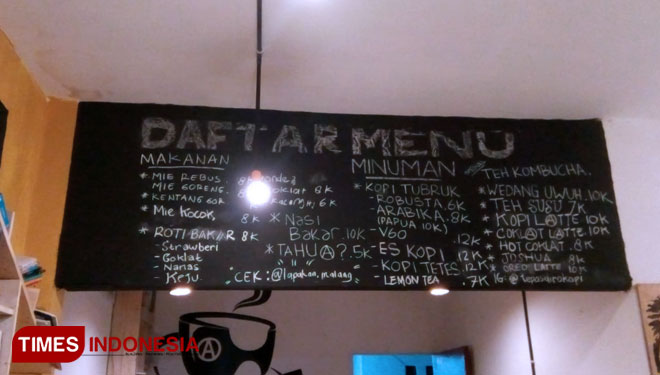 DAFTAR MENU
MAKANAN
* MIE REBUS. 8K
MIE GORENG.
* KENTANG GO
* Mie Kocok, 8K
* ROTI BAKAR 8K
- Strawberi
- Coklat
- Nanas
- Keju.
coklat 8K
6K
* Nasi
Bakar. 10K
* TAHU A?. 5K
CEK : @lapakan_malang
MINUMAN
* KOPI TUBRUK
- ROBUSTA. 6K
- ARABIKA. 8K
(PAPUA 10K)
- V60 .12K
- ES KOPI 12K
- KOPI TETES. 12K
- LEMON TEA .7K
TEH KOMBUCHA.
* WEDANG UWUH. 10K
* TEH SUSU 7K
* KOPI LATTE 10K
* COKLAT LATTE. 10K
* HOT COKLAT. 8K
* JOSHUA 8K
* OREO LATTE 10K
IG: @
A
TIMES INDONESIA